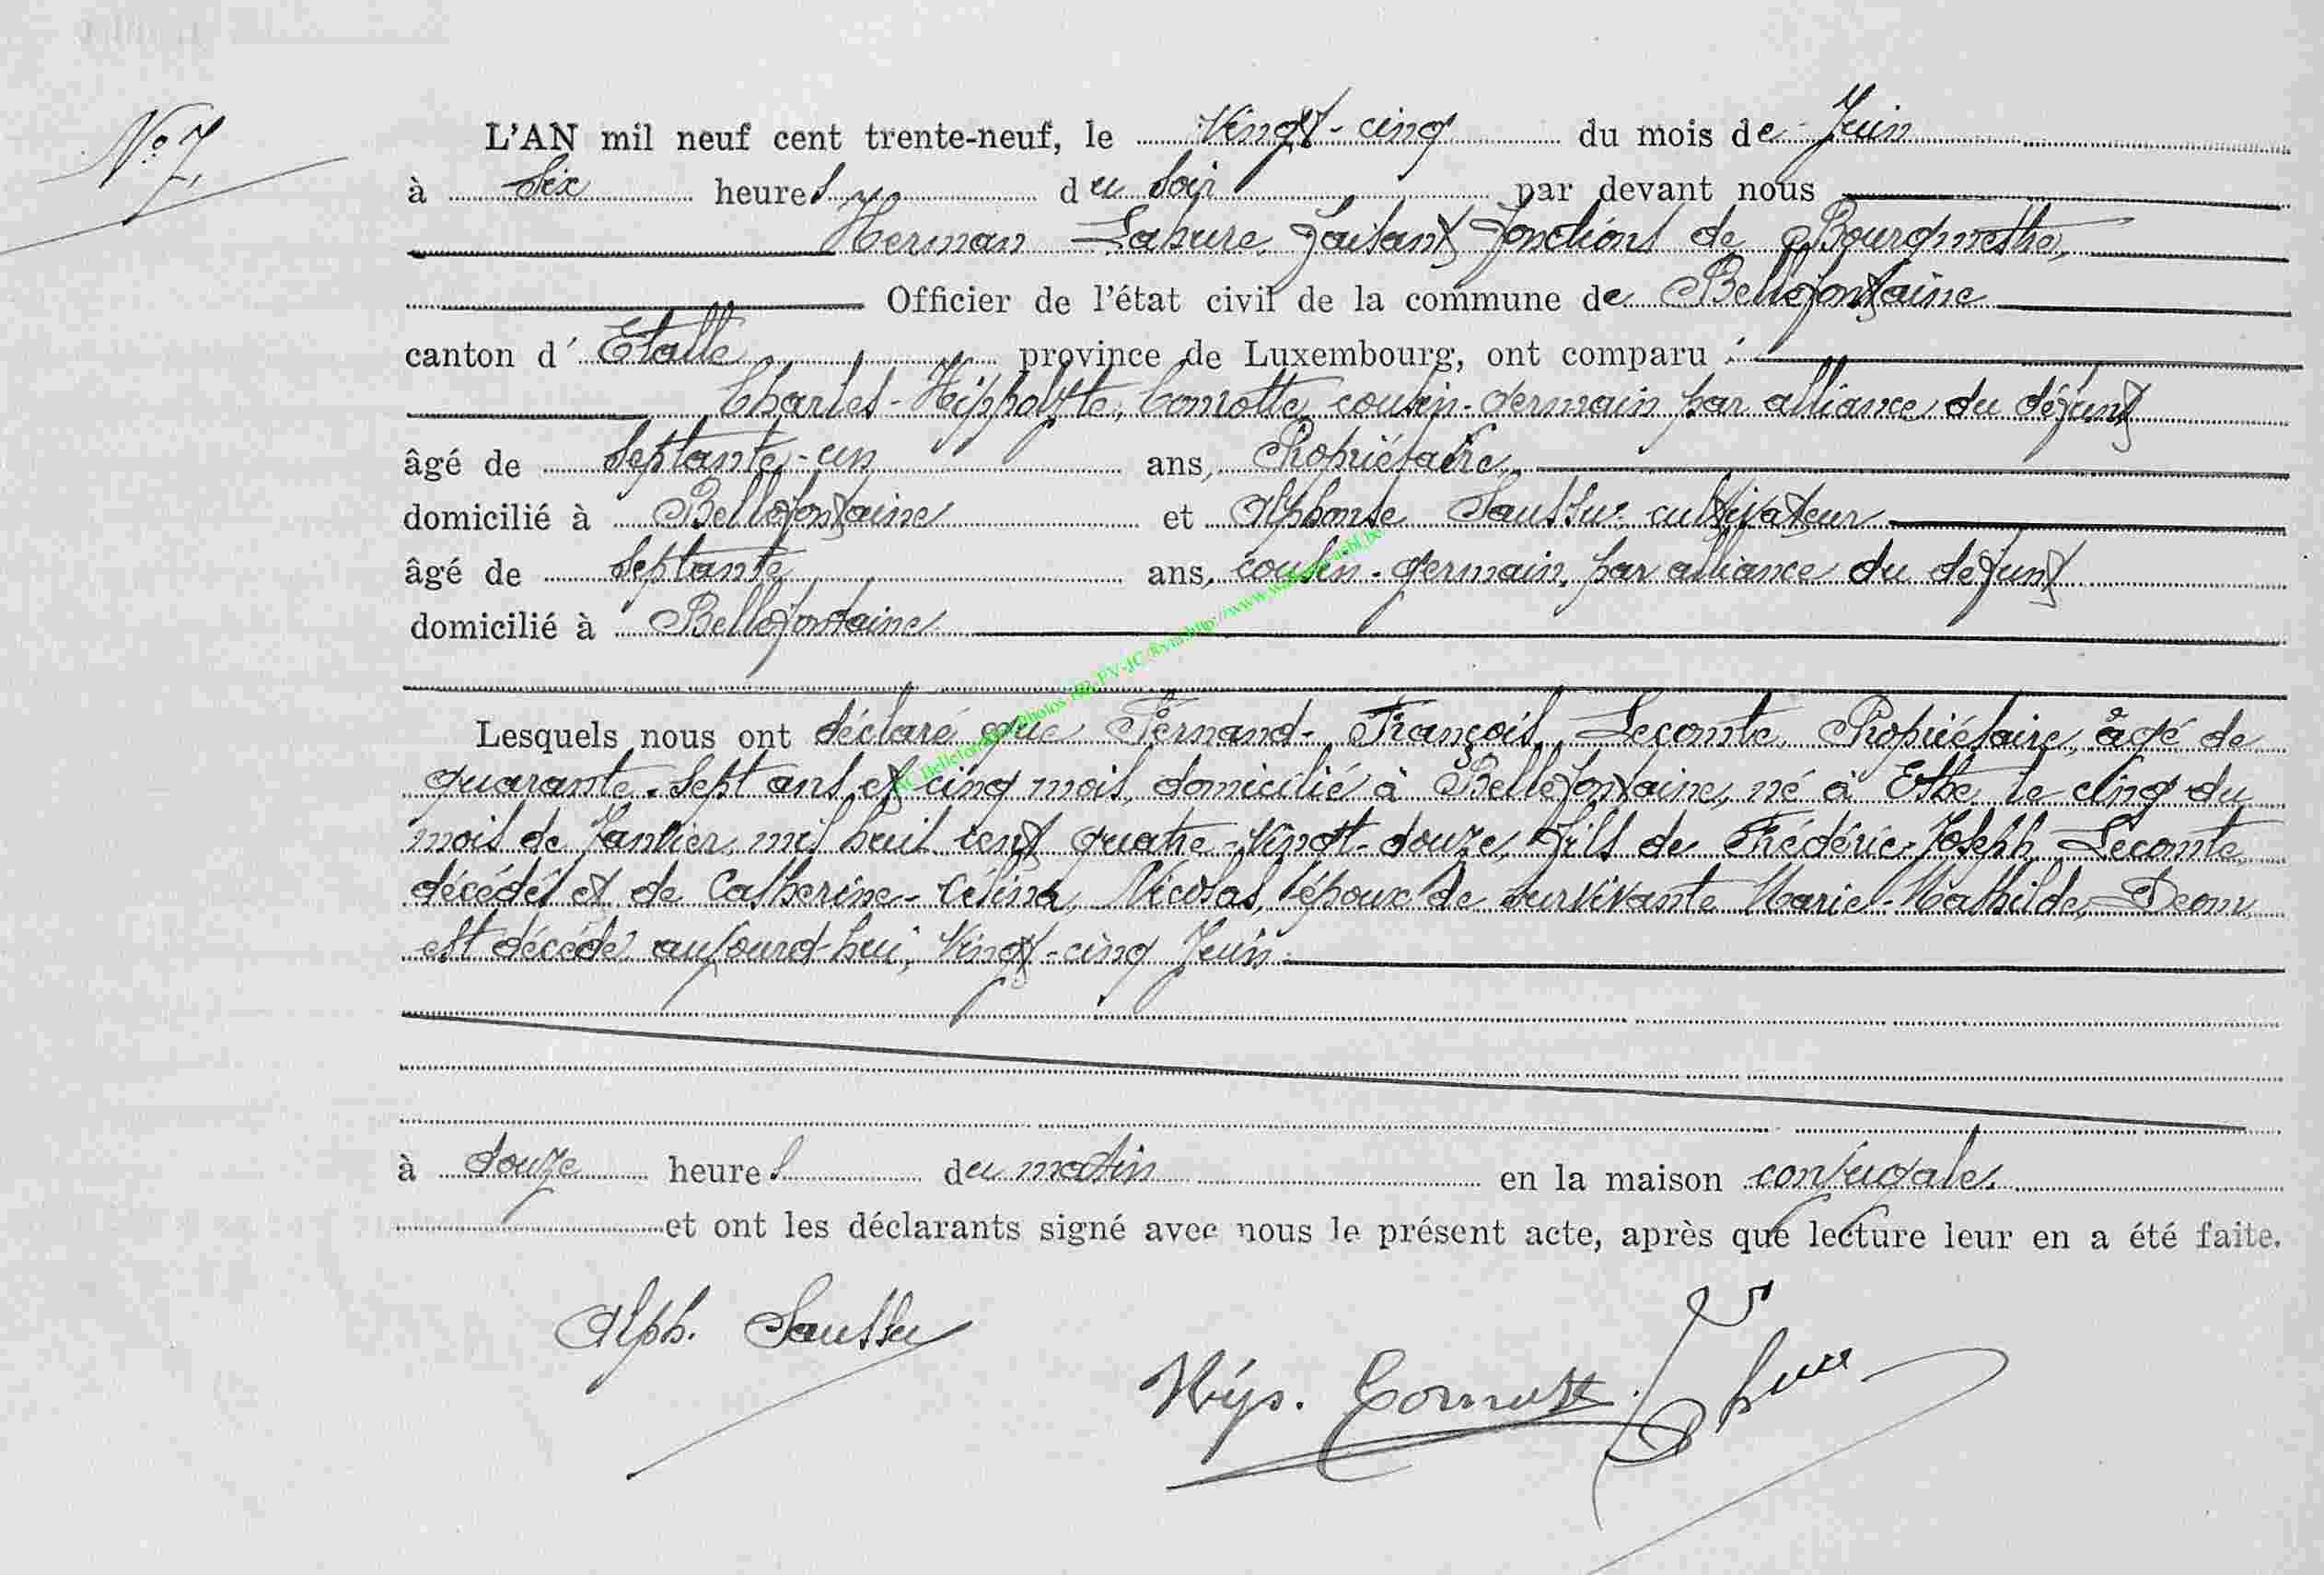 N° 7,
L'AN mil neuf cent trente-neuf, le vingt-cinq du mois de Juin
à six heures du soir par devant nous
Herman Lahure faisant fonctions de Bourgmestre,
Officier de l'état civil de la commune de Bellefontaine
canton d' Etalle province de Luxembourg, ont comparu :
Charles-Hippolyte, Cornette, cousin-germain par alliance du défunt
âgé de septante-un ans, Propriétaire,
domicilié à Bellefontaine et Alphonse Saussu cultivateur
âgé de septante ans, cousin-germain, par alliance du défunt
domicilié à Bellefontaine
Lesquels nous ont déclaré que Fernand-François, Lecomte, Propriétaire, âgé de
quarante-sept ans et cinq mois, domicilié à Bellefontaine, né à Ethe le cinq du
mois de Janvier mil huit cent quatre-vingt-douze, fils de Frédéric-Joseph Lecomte
décédé et de Catherine-Célina, Nicolas, époux de survivante Marie-Mathilde, Deom
est décédé aujourd'hui, vingt-cinq Juin
à douze heures du matin en la maison conjugale.
et ont les déclarants signé avec nous le présent acte, après que lecture leur en a été faite.
Alph. Saussu
Hip.